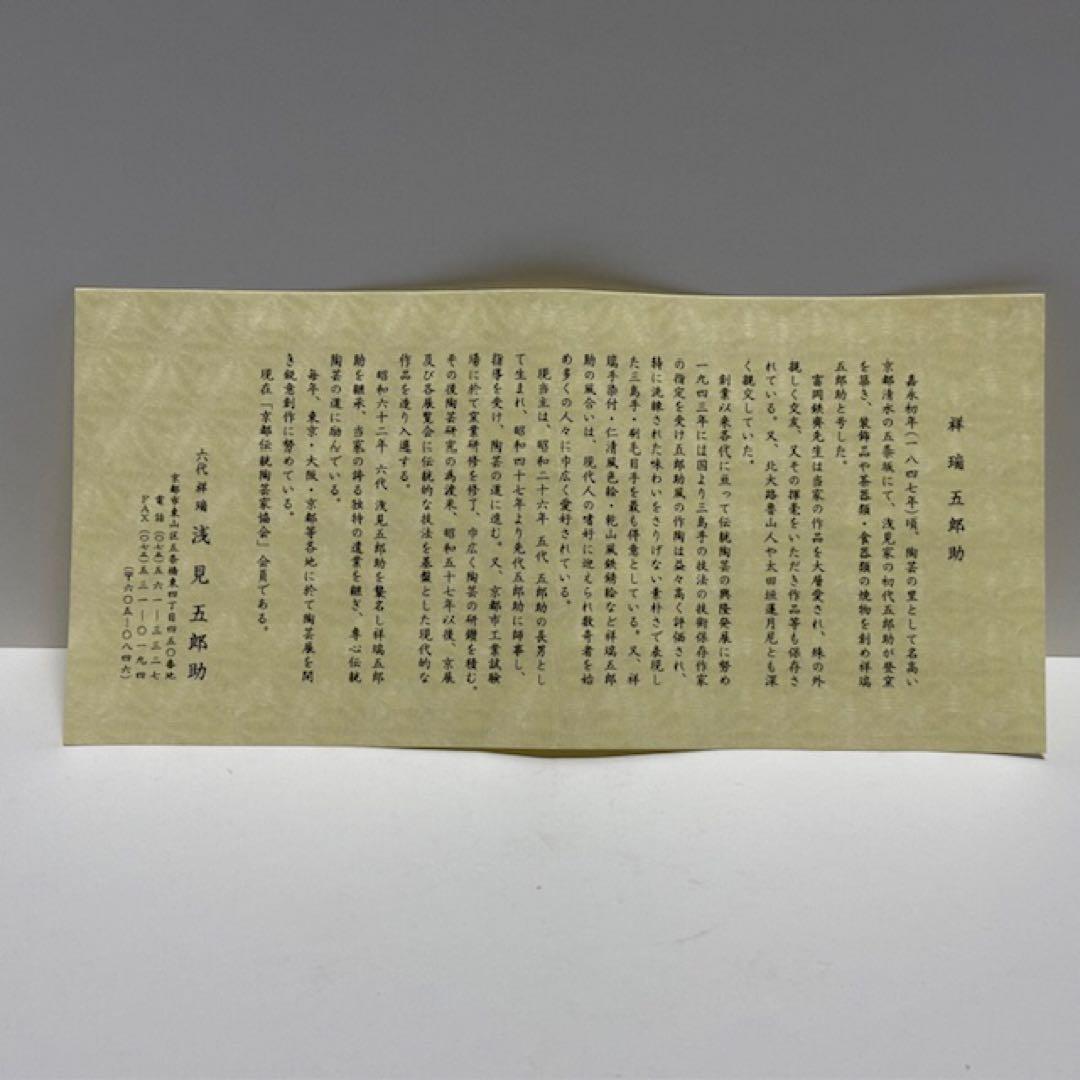 祥瑞五郎助
嘉永初年(一八四七年)頃、陶芸の里として名高い
京都清水の五条坂にて、浅見家の初代五郎助が登窯
を築き、装飾品や茶器類・食器類の焼物を創め祥瑞
五郎助と号した。
富岡鉄斎先生は当家の作品を大層愛され、殊の外
親しく交友、又その揮毫をいただき作品等も保存さ
れている。又、北大路魯山人や太田垣蓮月尼とも深
く親交していた。
創業以来各代に亘って伝統陶芸の興隆発展に努め
一九四三年には国より三島手の技法の技術保存作家
の指定を受け五郎助風の作陶は益々高く評価され、
特に洗練された味わいをさりげない素朴さで表現し
た三島手・刷毛目手を最も得意としている。又、祥
瑞手染付・仁清風色絵・乾山風銹絵など祥瑞五郎
助の風合いは、現代人の嗜好に迎えられ数奇者を始
め多くの人々に巾広く愛好されている。
現当主は、昭和二十六年 五代、五郎助の長男とし
て生まれ、昭和四十七年より先代五郎助に師事し、
指導を受け、陶芸の道に進む。又、京都市工業試験
場に於て窯業研修を修了、巾広く陶芸の研鑽を積む。
その後陶芸研究の為渡米、昭和五十七年以後、京展
及び各展覧会に伝統的な技法を基盤とした現代的な
作品を造り入選する。
昭和六十二年 六代、浅見五郎助を襲名し祥瑞五郎
助を継承、当家の誇る独特の遺業を継ぎ、専心伝統
陶芸の道に励んでいる。
毎年、東京・大阪・京都等各地に於て陶芸展を開
き鋭意創作に努めている。
現在「京都伝統陶芸家協会」会員である。
六代祥瑞 浅見五郎助
京都市東山区五条橋東四丁目四五〇番地
電話(〇七五)五六一―三三二七
FAX(〇七五)五三一―〇一九四
(〒六〇五―〇八四六)